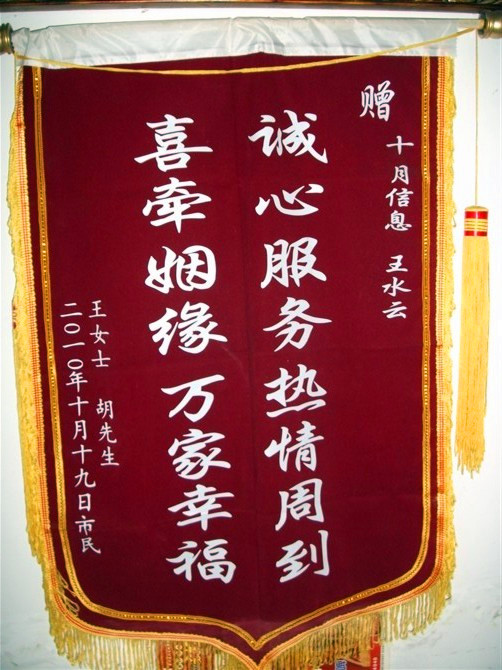 赠
十月信息 王水云
诚心服务热情周到
喜牵姻缘万家幸福
王女士 胡先生
二〇一〇年十月十九日市民